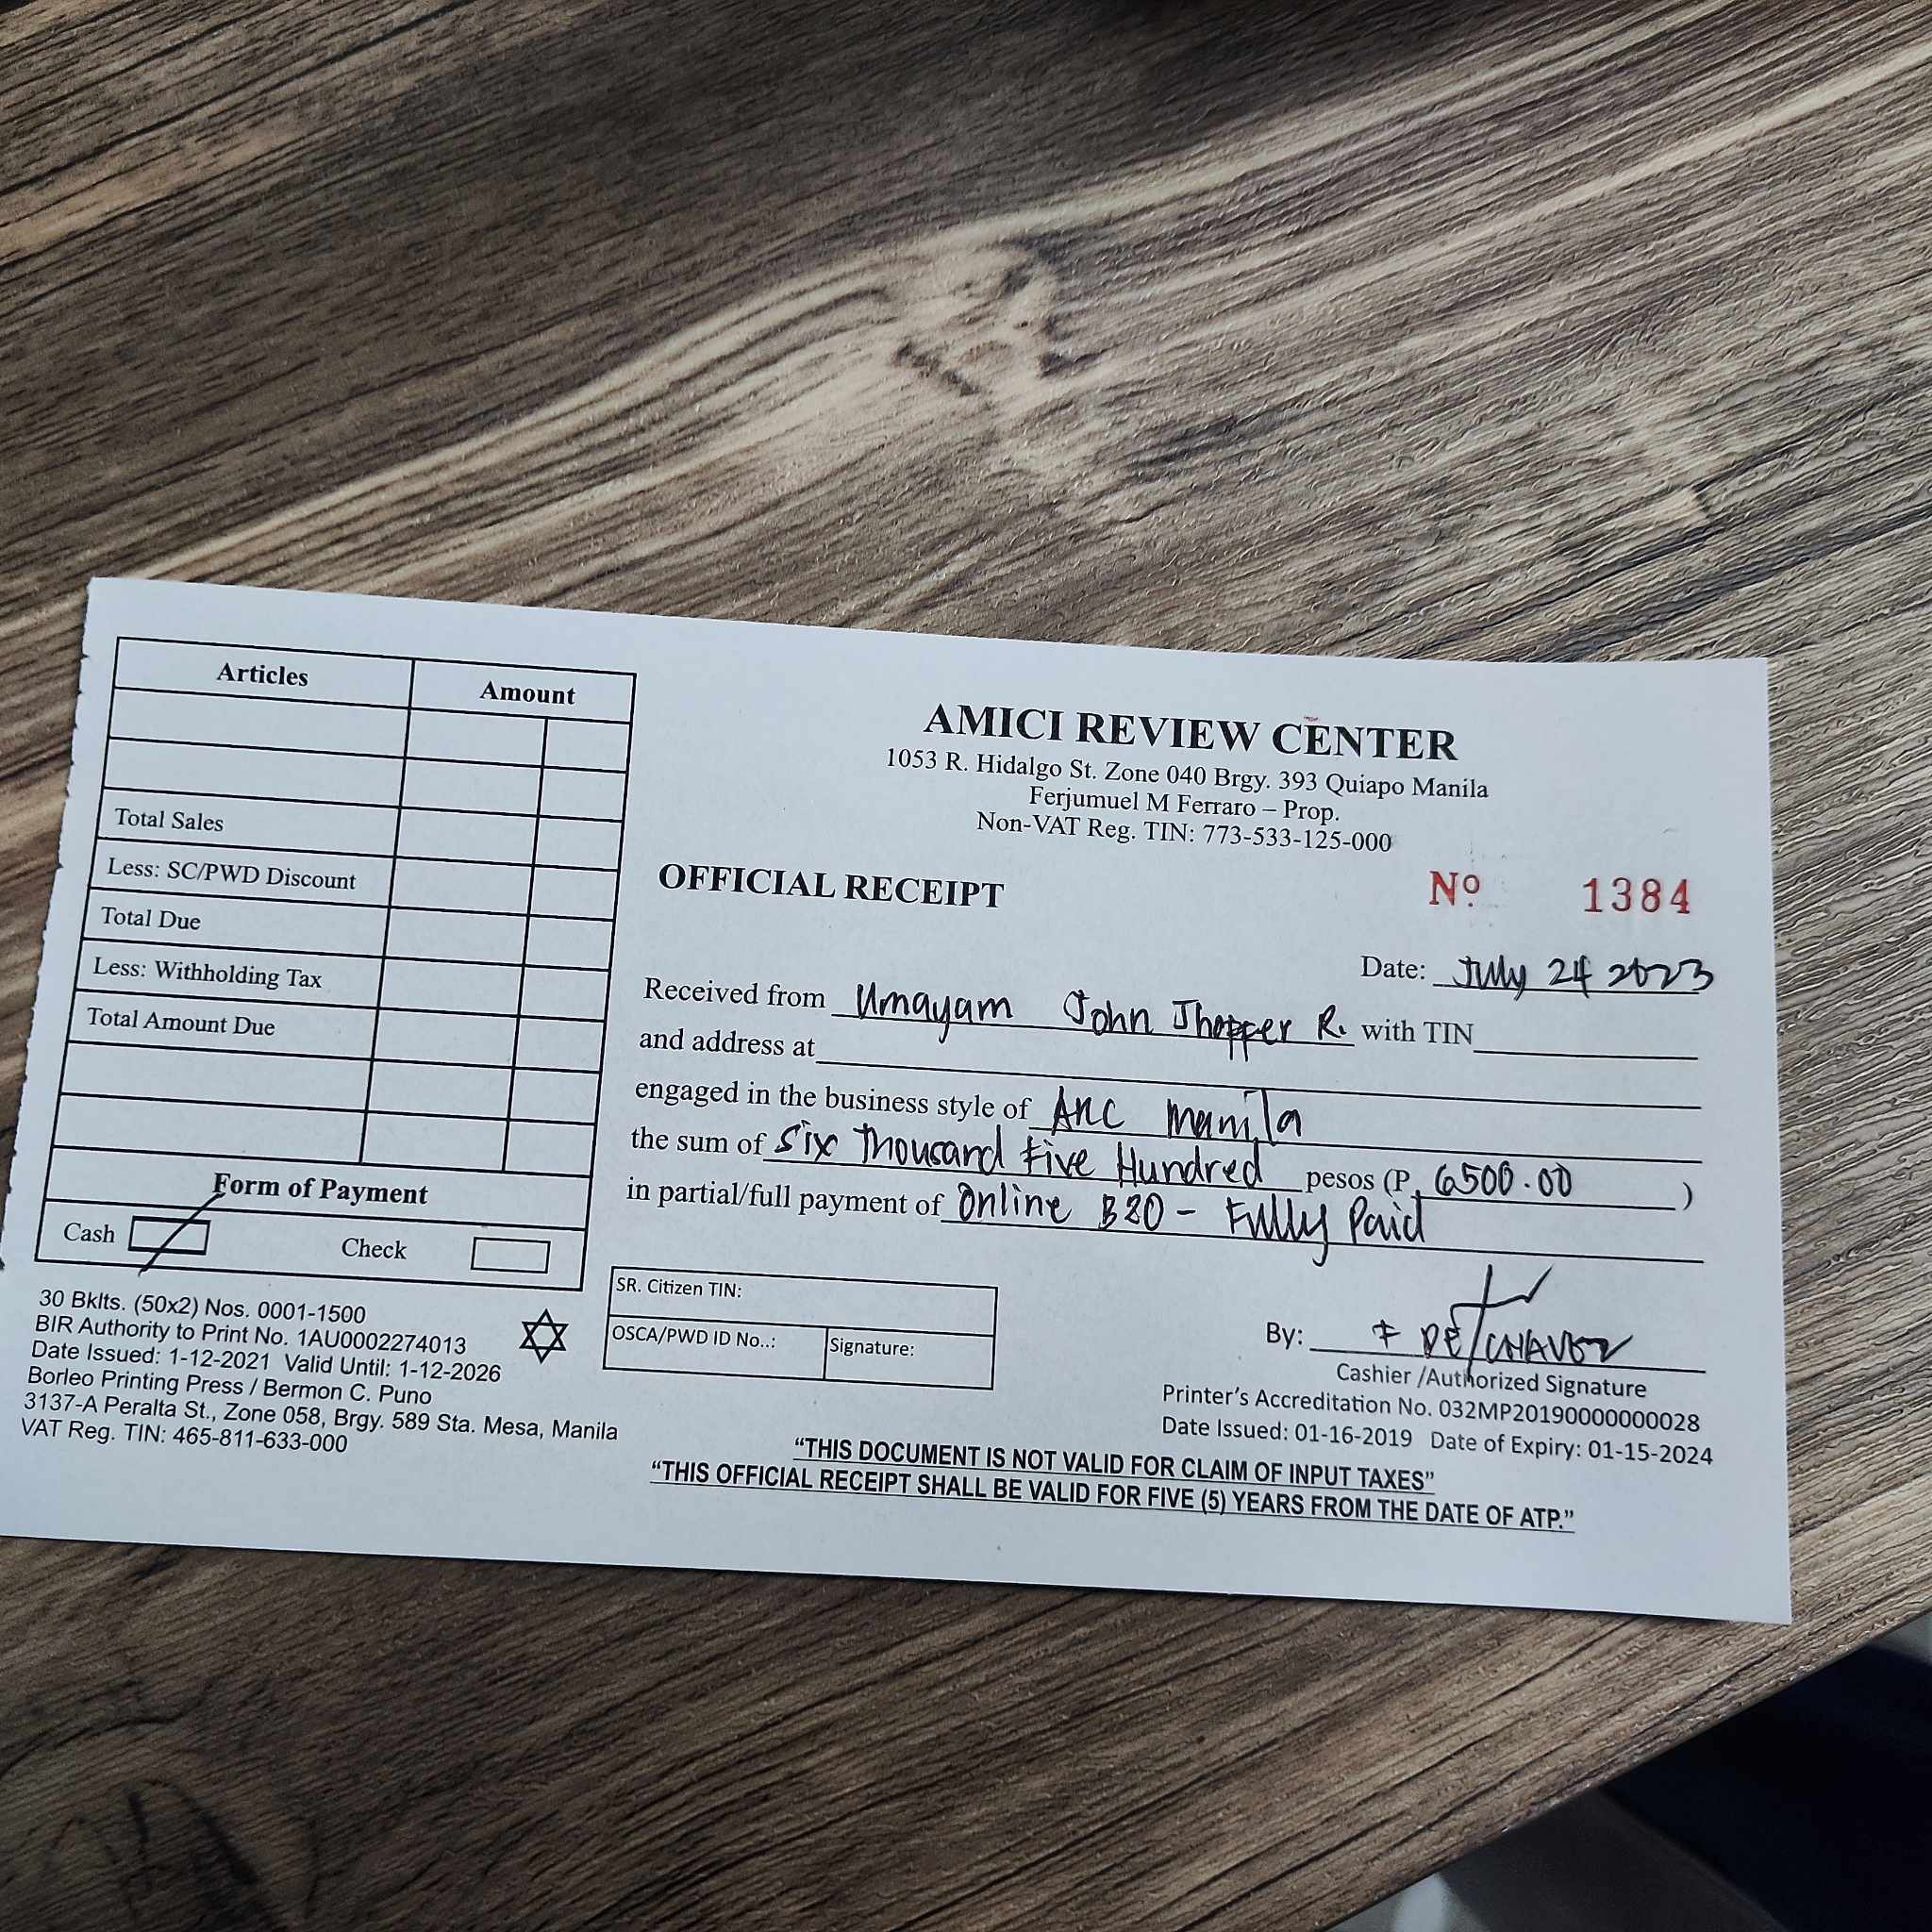 Articles Amount
Total Sales
Less: SC/PWD Discount
Total Due
Less: Withholding Tax
Total Amount Due
Form of Payment
Cash Check
30 Bklts. (50x2) Nos. 0001-1500
BIR Authority to Print No. 1AU0002274013
Date Issued: 1-12-2021 Valid Until: 1-12-2026
Borleo Printing Press / Bermon C. Puno
3137-A Peralta St., Zone 058, Brgy. 589 Sta. Mesa, Manila
VAT Reg. TIN: 465-811-633-000
AMICI REVIEW CENTER
1053 R. Hidalgo St. Zone 040 Brgy. 393 Quiapo Manila
Ferjumuel M Ferraro – Prop.
Non-VAT Reg. TIN: 773-533-125-000
OFFICIAL RECEIPT Nº 1384
Date: July 24 2023
Received from Umayam John Jhopper R. with TIN
and address at
engaged in the business style of ARC Manila
the sum of Six Thousand Five Hundred pesos (P 6500.00 )
in partial/full payment of Online B20 - Fully Paid
SR. Citizen TIN:
OSCA/PWD ID No..: Signature:
By: F DE CHAVEZ
Cashier /Authorized Signature
Printer's Accreditation No. 032MP20190000000028
Date Issued: 01-16-2019 Date of Expiry: 01-15-2024
“THIS DOCUMENT IS NOT VALID FOR CLAIM OF INPUT TAXES”
“THIS OFFICIAL RECEIPT SHALL BE VALID FOR FIVE (5) YEARS FROM THE DATE OF ATP.”